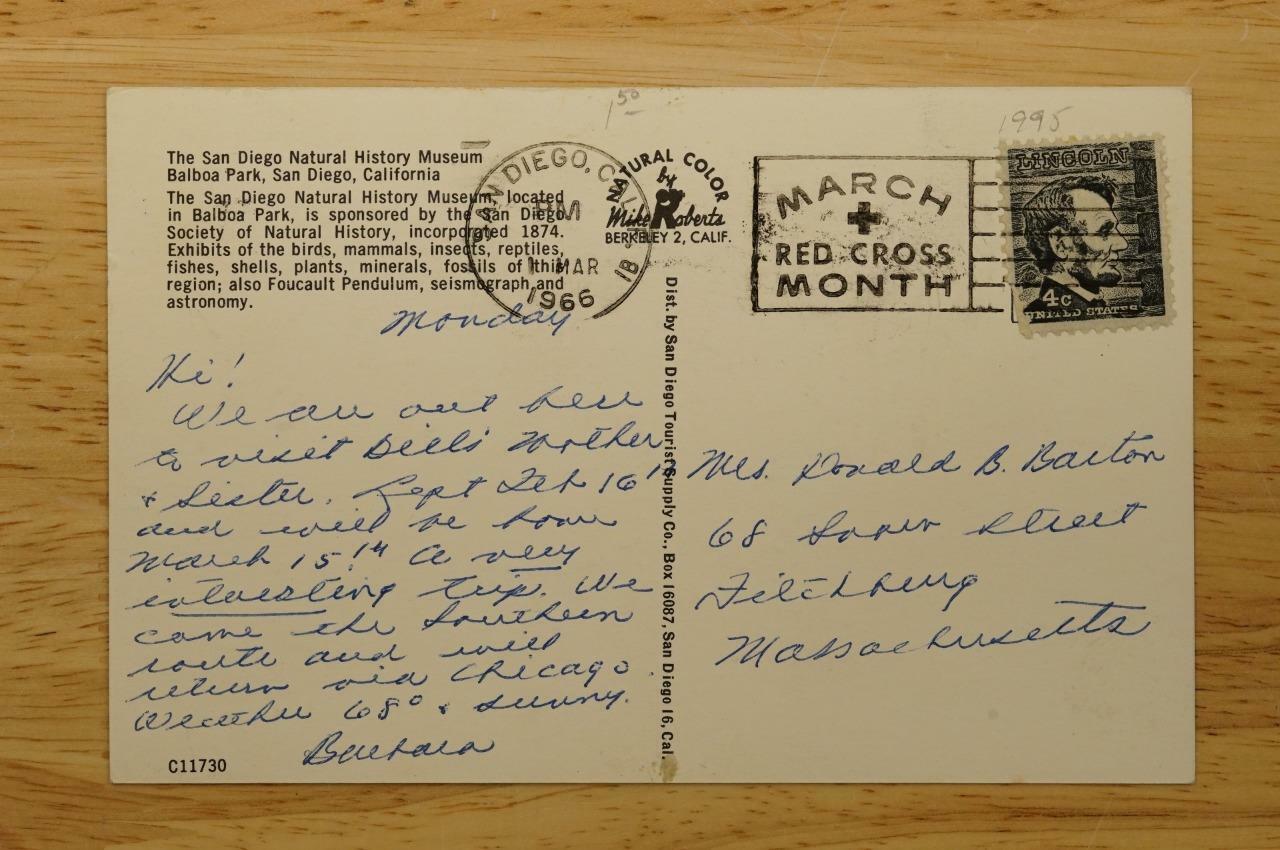 1 50
1995
The San Diego Natural History Museum
Balboa Park, San Diego, California
The San Diego Natural History Museum, located
in Balboa Park, is sponsored by the San Diego
Society of Natural History, incorporated 1874.
Exhibits of the birds, mammals, insects, reptiles,
fishes, shells, plants, minerals, fossils of this
region; also Foucault Pendulum, seismograph and
astronomy.
SAN DIEGO, CALIF.
PM
1 MAR
1966
NATURAL COLOR
by
Mike Roberts
BERKELEY 2, CALIF.
MARCH
RED CROSS
MONTH
LINCOLN
4c
UNITED STATES
Monday
Hi!
We are out here
to visit Bill's Mother
& Sister. Left Feb 16th
and will be home
March 15th. A very
interesting trip. We
came the Southern
route and will
return via Chicago
Weather 68° & sunny.
Barbara
C11730
Dist. by San Diego Tourist Supply Co., Box 16087, San Diego 16, Cal.
Mrs. Donald B. Barton
68 Street
Fitchburg
Massachusetts